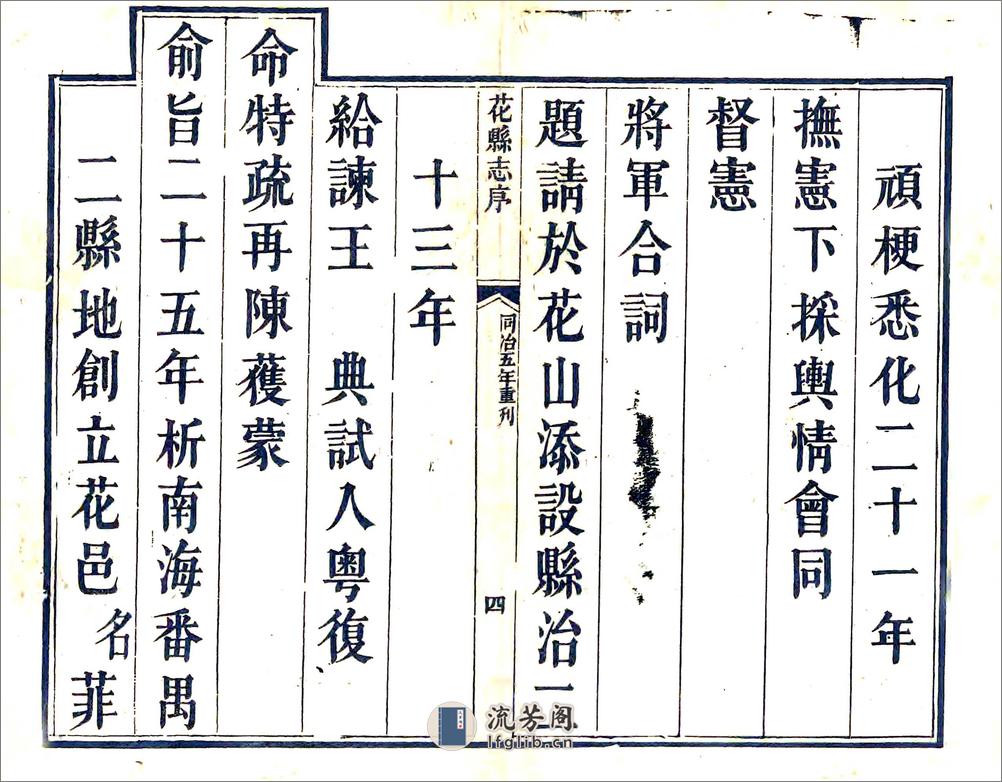 頑梗悉化二十一年
撫憲下採輿情會同
督憲
將軍合詞
題請於花山添設縣治二
花縣志序
同治五年重刋
四
十三年
給諫王 典試入粵復
命特疏再陳蒦蒙
俞旨二十五年析南海番禺
二縣地創立花邑名菲
流芳阁
lfglib.cn